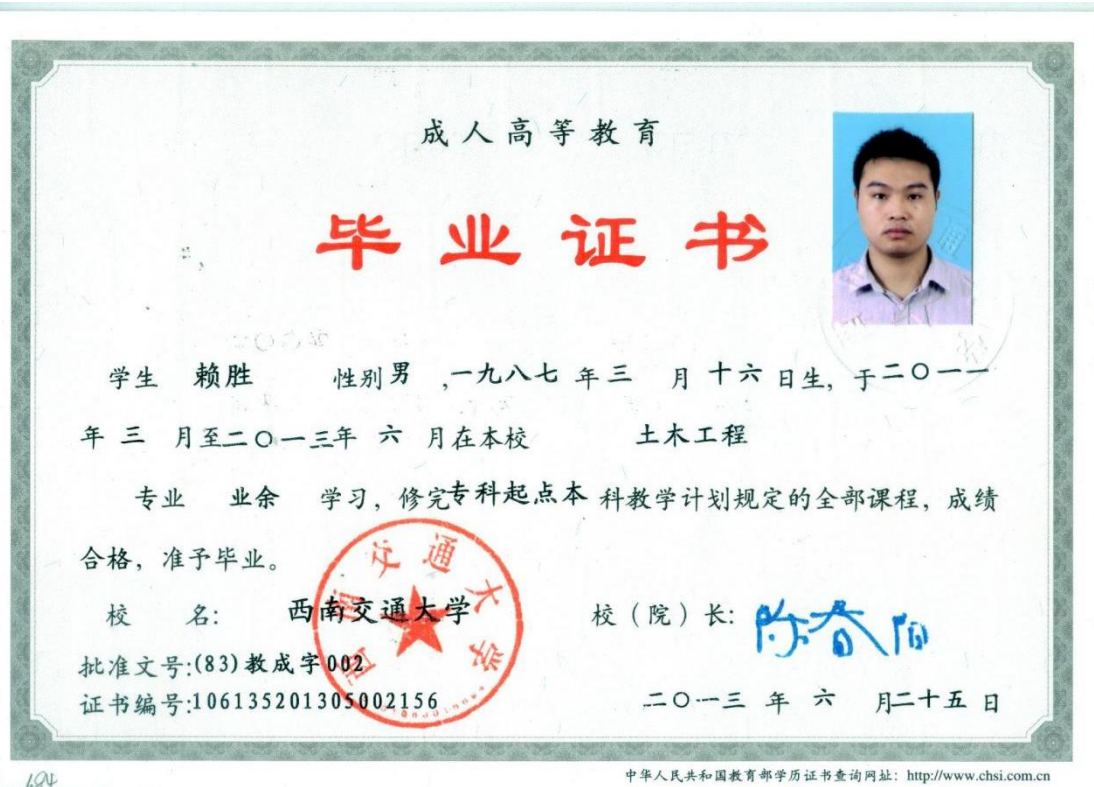 成人高等教育
毕业证书
学生 赖胜 性别 男 ,一九八七 年 三 月 十六 日生, 于二〇一一
年 三 月至二〇一三年 六 月在本校 土木工程
专业 业余 学习, 修完专科起点本 科教学计划规定的全部课程, 成绩
合格, 准予毕业。
校 名: 西南交通大学 校(院)长: 陈春阳
西南交通大学
批准文号:(83)教成字002
证书编号:106135201305002156 二〇一三 年 六 月二十五 日
684
中华人民共和国教育部学历证书查询网址: http://www.chsi.com.cn